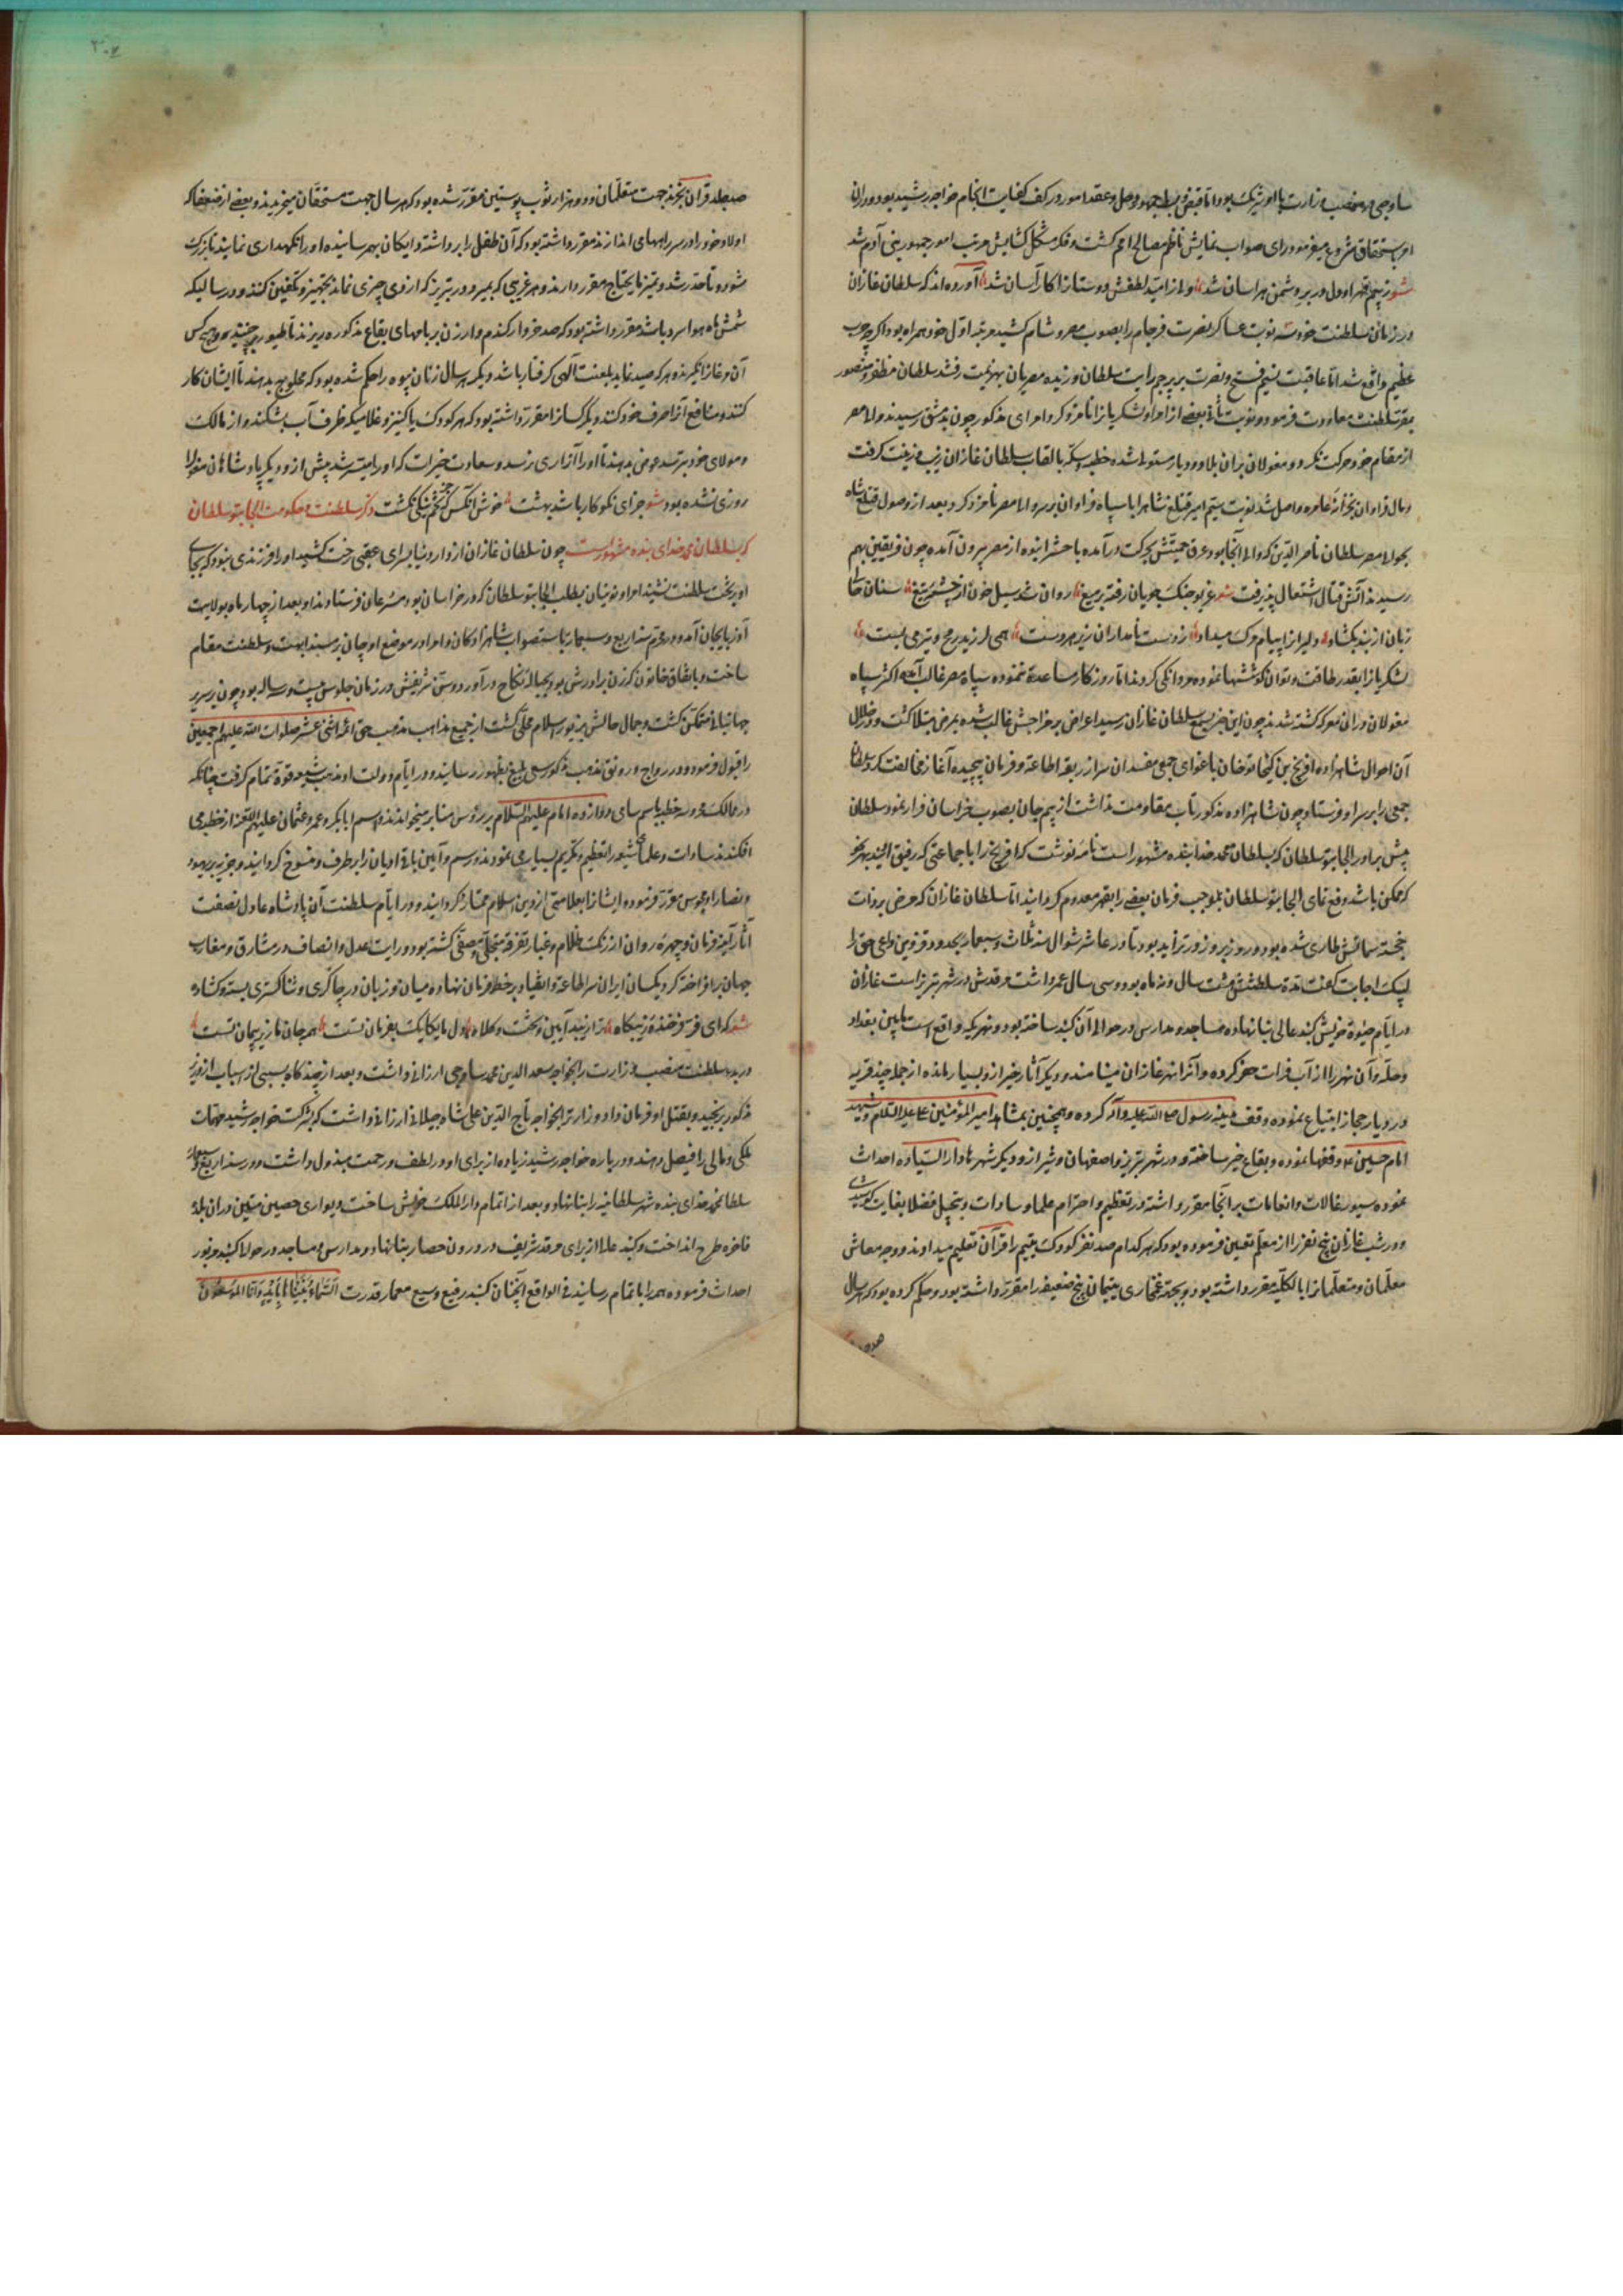 ساوجی در منصب وزارت با او شریک بود اما قبض و بسط جمهور و حل و عقد امور در کف کفایت انجام خواجه رشید بود و در آن
امر باستحقاق شروع میفرمود و رای صواب نمایش ناظم مصالح امم گشت و فکر مشکل گشایش مرتب امور جمهور بنی آدم شد
شعر ز بیم قهر او دل در بر دشمن هراسان شد ولی از امید لطفش دوستانرا کار آسان شد آورده اند که سلطان غازان
در زمان سلطنت خود سه نوبت عساکر نصرت فرجام را بصوب مصر و شام کشید مرتبه اول خود همراه بود اگرچه حرب
عظیم واقع شد اما عاقبت نسیم فتح و نصرت بر پرچم رایت سلطان وزیده مصریان بهزیمت رفتند سلطان مظفر و منصور
بمقر سلطنت معاودت فرمود و نوبت ثانی بعضی از امرا و لشکریانرا نامزد کرد امرای مذکور چون بدمشق رسیدند والی مصر
از مقام خود حرکت نکرد و مغولان بر آن بلاد و دیار مستولی شده خطبه و سکه بالقاب سلطان غازان زیب و زینت گرفت
و مال فراوان بخزانه عامره واصل شد نوبت سیم امیر قتلغ شاه را با سپاه فراوان بر سر والی مصر نامزد کرد و بعد از وصول قتلغ شاه
بحوالی مصر سلطان ناصر الدین که والی آنجا بود عرق حمیتش بحرکت درآمده با حشر انبوه از مصر بیرون آمده چون فریقین بهم
رسیدند آتش قتال اشتعال پذیرفت شعر غریو جنگ جویان رفته بر میغ روان شد سیل خون از چشمه تیغ سنان
زبان از بند بگشاد دلیرانرا پیام مرگ میداد ز دست نامداران زبردست همی لرزید رمح و تیر می جست
لشکریانرا بقدر طاقت و توان کوششها نموده مردانگی کردند اما روزگار مساعدت ننموده سپاه مصر غالب آمده اکثر سپاه
مغولان در آن معرکه کشته شدند چون این خبر بسمع سلطان غازان رسید اعراض بر مزاجش غالب شده بمرض مبتلا گشت و در خلال
آن احوال شاهزاده الافرنگ بن کیخاتو خان باغوای جمعی مفسدان سر از ربقه اطاعت و فرمان پیچیده آغاز مخالفت کرد سلطان
جمعی را بر سر او فرستاد چون شاهزاده مذکور تاب مقاومت نداشت از بیم جان بصوب خراسان فرار نمود سلطان
پیش برادر الجایتو سلطان که بسلطان محمد خدابنده مشهور است نامه نوشت که را با جماعتی که رفیق اویند بهر نحو
که ممکن باشد دفع نمای الجایتو سلطان بموجب فرمان بعضی را بقهر معدوم گردانید اما سلطان غازان که مرض بر ذات
خجسته صفاتش طاری شده بود و روز بروز در تزاید بود تا در عاشر شوال سنه ثلاث و سبعمایه بحدود قزوین داعی حق را
لبیک اجابت گفت مدت سلطنتش هشت سال و نه ماه بود و سی سال عمر داشت مرقدش در شهر تبریز است غازان
در ایام حیوة خویش گنبد عالی بنا نهاده مساجد و مدارس در حوالی آن گنبد ساخته بود و نهری که واقع است مابین بغداد
و حله و آن نهر را از آب فرات حفر کرده و آنرا نهر غازان مینامند و دیگر آثار خیر از و بسیار مانده از جمله چند قریه
در دیار حجاز ابتیاع نموده وقف مدینه رسول صلی الله علیه و آله کرده و همچنین بمشاهد امیر المؤمنین علی علیه السلام و مشهد
امام حسین ع وقفها نموده و بقاع خیر ساخته و در شهر تبریز و اصفهان و شیراز و دیگر شهرها دار السیاده احداث
نموده سیورغالات و انعامات بر آنجا مقرر داشته در تعظیم و احترام علما و سادات و تبجیل فضلا بغایت کوشیدی
و در شنب غازان پنج نفر را از معلم تعیین فرموده بود که هر کدام صد نفر کودک یتیم را قرآن تعلیم میدادند و وجه معاش
معلمان و متعلمانرا بالکلیه مقرر داشته بود و بجهة غمخواری یتیمان پنج ضعیفه را مقرر داشته بود و حکم کرده بود که هر سال
صد جلد قرآن بخرند جهت متعلمان و دو هزار ثوب پوستین مقرر شده بود که هر سال جهت مستحقان میخریدند و بعضی از ضعفا که
اولاد خود را در سر راههای اندازند مقرر داشته بود که آن طفل را برداشته دایگان بهم رسانیده او را نگهداری نمایند تا بزرگ
شود و تا حد رشد و تمیز مایحتاج مقرر دارند و هر غریبی که بمیرد در تبریز که از وی چیزی نماند تجهیز و تکفین کنند و در سالی که
شش ماه هوا سرد باشد مقرر داشته بود که صد خروار گندم و ارزن بر بامهای بقاع مذکوره بریزند تا طیور برچینند و هیچ کس
آن مرغانرا نگیرند و هر که صید نماید بلعنت الهی گرفتار باشد و دیگر هر سال زنان بیوه را حکم شده بود که محلوج بدهند تا ایشان کار
کنند و منافع آنرا صرف خود کنند و دیگر کسانرا مقرر داشته بود که هر کودک یا کنیز و غلامی که ظرف آب بشکند و از مالک
و مولای خود بترسد عوض بدهند تا او را آزاری نرسد و سعادت خیرات که او را میسر شد پیش از و دیگر پادشاهان مغول را
روزی نشده بود شعر جزای نکوکار باشد بهشت خوش آنکس که تخم نیکی بکشت ذکر سلطنت و حکومت الجایتو سلطان
که بسلطان محمد خدای بنده مشهور است چون سلطان غازان از دار دنیا بسرای عقبی رخت کشید او را فرزندی نبود که بجای
او بر تخت سلطنت نشیند امرا و نوئینان بطلب الجایتو سلطان که در خراسان بود مسرعان فرستادند و بعد از چهار ماه بولایت
آذربایجان آمده در غره سنه اربع و سبعمایه باستصواب شاهزادگان و امرا در موضع اوجان بر مسند ابهت و سلطنت مقام
ساخت و باتفاق خاتون که زن برادرش بود بحباله نکاح درآورد و سن شریفش در زمان جلوس بیست و سه ساله بود و چون بر سریر
جهانبانی متمکن گشت و جمال حالش بزیور اسلام محلی گشت از جمیع مذاهب مذهب حق ائمه اثنی عشر صلوات الله علیهم اجمعین
را قبول فرمود و در رواج و رونق مذهب مذکور سعی بلیغ بظهور رسانید و در ایام دولت او مذهب شیعه قوة تمام گرفت چنانکه
در ممالک محروسه خطبه باسم سامی دوازده امام علیهم السلام بر رؤس منابر میخواندند و اسم ابابکر و عمر و عثمان علیهم اللعنه از خطبه می
افکندند سادات و علمای شیعه را تعظیم و تکریم بسیار می نمودند و رسم و آیین باقی ادیان را برطرف و منسوخ گردانید و جزیه بر یهود
و نصارا و مجوس مقرر فرموده ایشانرا بعلامتی از دین اسلام ممتاز گردانید و در ایام سلطنت آن پادشاه عادل نصفت
آثار آینه زمان و چهره روان از زنگ ظلام و غبار تفرقه متجلی و مصفی گشته بود و رایت عدل و انصاف در مشارق و مغارب
جهان برافراخته گردنکشان ایران سر اطاعة و انقیاد بر خط فرمان نهاده میان و زبان در چاکری و ثناگستری بسته و گشاده
شعر که ای فر فرخنده زیبگاه ترا زیبد آیین و تخت و کلاه دل ما یکایک بفرمان تست همه جان ما زیر پیمان تست
در بدو سلطنت منصب وزارت را بخواجه سعد الدین محمد ساوجی ارزانی داشت و بعد از چندگاه بسببی از اسباب از وزیر
مذکور برنجید و بقتل او فرمان داد و وزارت بخواجه تاج الدین علی شاه جیلانی ارزانی داشت که بشرکت خواجه رشید مهمات
ملکی و مالی را فیصل دهند و درباره خواجه رشید زیاده از برای او در لطف و رحمت مبذول داشت و در سنه اربع و سبعمایه
سلطان محمد خدای بنده شهر سلطانیه را بنا نهاد و بعد از اتمام دار الملک خویش ساخت و دیواری حصین متین در آن بلده
فاخره طرح انداخت و گنبد علا از برای مرقد شریف در درون حصار بنا نهاد و مدارس و مساجد در حوالی گنبد مزبور
احداث فرموده همه را باتمام رسانید فی الواقع آنچنان گنبد رفیع وسیع معمار قدرت السماء بنیناها باید و انا لموسعون